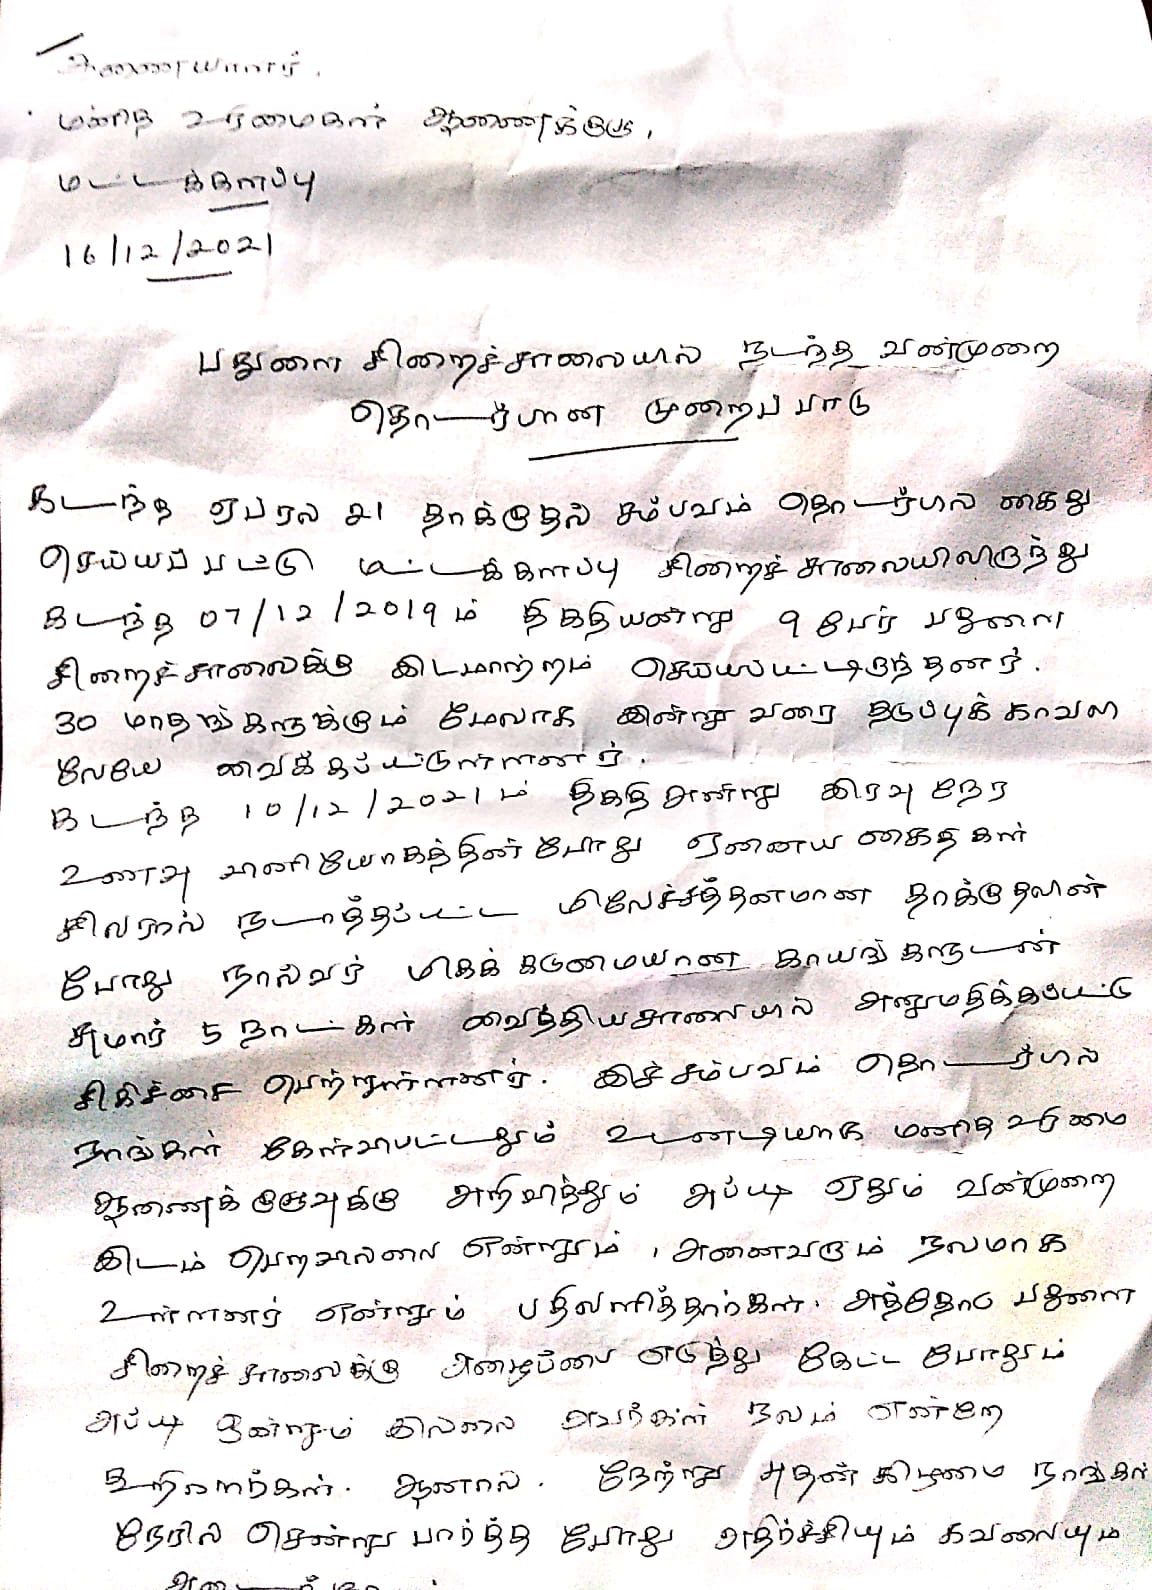 ஆணையாளர்,
மனித உரிமைகள் ஆணைக்குழு,
மட்டக்களப்பு
16/12/2021
பதுளை சிறைச்சாலையில் நடந்த வன்முறை
தொடர்பான முறைப்பாடு
கடந்த ஏப்ரல் 21 தாக்குதல் சம்பவம் தொடர்பில் கைது
செய்யப்பட்டு மட்டக்களப்பு சிறைச்சாலையிலிருந்து
கடந்த 07/12/2019ம் திகதியன்று 9 பேர் பதுளை
சிறைச்சாலைக்கு இடமாற்றம் செய்யப்பட்டிருந்தனர்.
30 மாதங்களுக்கும் மேலாக இன்று வரை தடுப்புக் காவல
லேயே வைக்கப்பட்டுள்ளனர்.
கடந்த 10/12/2021ம் திகதி அன்று இரவு நேர
உணவு வினியோகத்தின் போது ஏனைய கைதிகள்
சிலரால் நடாத்தப்பட்ட மிலேச்சத்தனமான தாக்குதலின்
போது நால்வர் மிகக் கடுமையான காயங்களுடன்
சுமார் 5 நாட்கள் வைத்தியசாலையில் அனுமதிக்கப்பட்டு
சிகிச்சை பெற்றுள்ளனர். இச்சம்பவம் தொடர்பில்
நாங்கள் கேள்விபட்டதும் உடனடியாக மனித உரிமை
ஆணைக்குழுவுக்கு அறிவித்தும் அப்படி ஏதும் வன்முறை
இடம் பெறவில்லை என்றும், அனைவரும் நலமாக
உள்ளனர் என்றும் பதிலளித்தார்கள். அத்தோடு பதுளை
சிறைச்சாலைக்கு அழைப்பை எடுத்து கேட்ட போதும்
அப்படி ஒன்றும் இல்லை அவர்கள் நலம் என்றே
கூறினார்கள். ஆனால். நேற்று புதன் கிழமை நாங்கள்
நேரில் சென்று பார்த்த போது அதிர்ச்சியும் கவலையும்